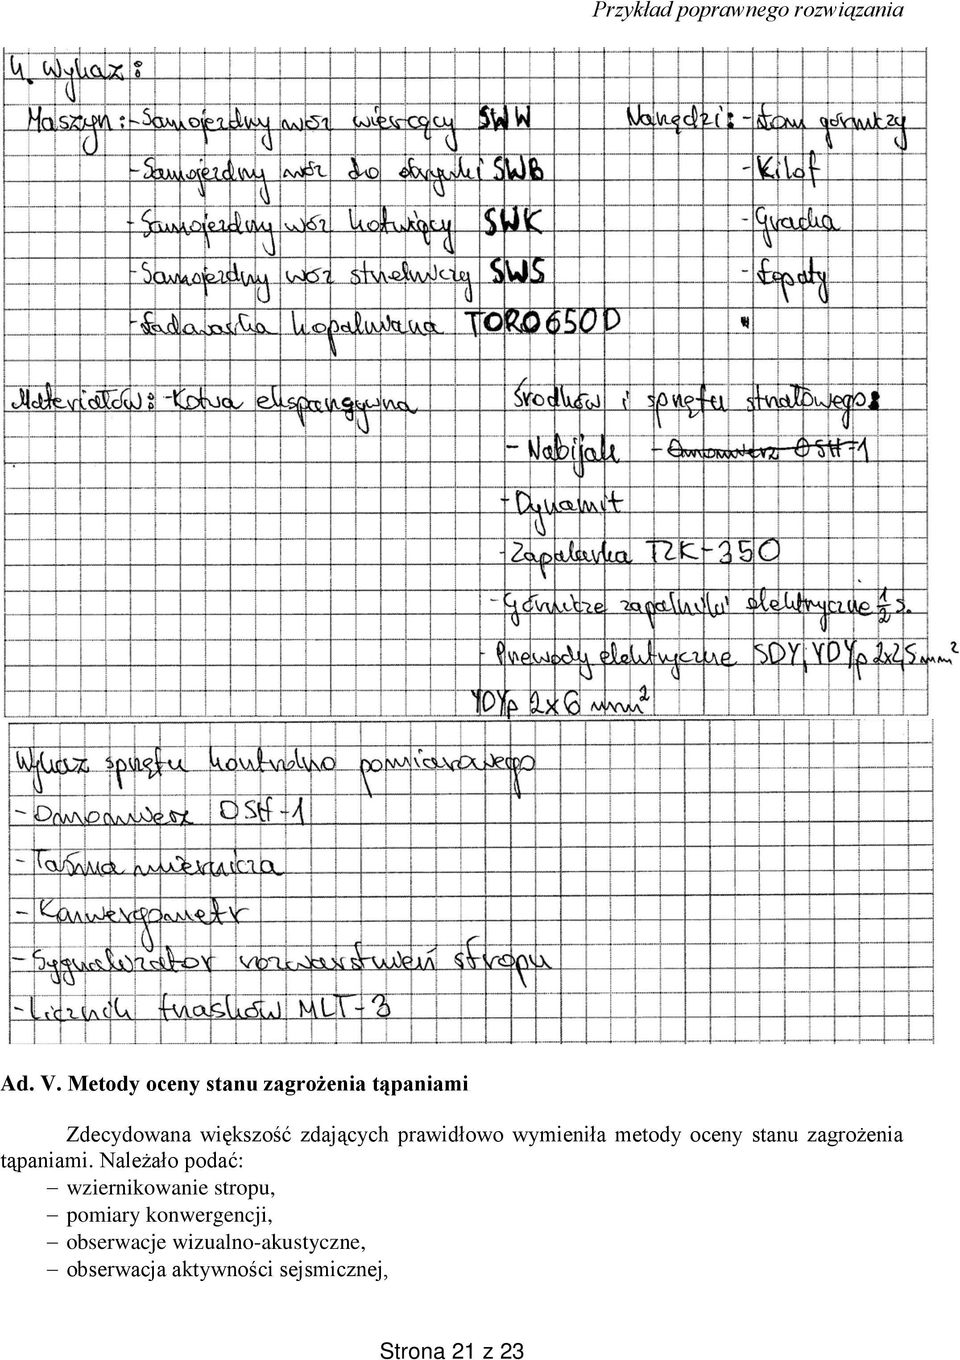 Przykład poprawnego rozwiązania
4. Wykaz:
Maszyn: - Samojezdny wóz wiercący SWW
- Samojezdny wóz do obrywki SWB
- Samojezdny wóz kotwiący SWK
- Samojezdny wóz strzelniczy SWS
- Ładowarka kopalniana TORO 650D
Narzędzi: - łom górniczy
- Kilof
- Gracka
- Łopaty
Materiałów: - Kotwa ekspansywna
Środków i sprzętu strzałowego:
- Nabijak - Omomierz OSH-1
- Dynamit
- Zapalarka TZK-350
- Górnicze zapalniki elektryczne 1/2 s.
- Przewody elektryczne SDY, YDYp 2x2,5mm²
YDYp 2x6 mm²
Wykaz sprzętu kontrolno pomiarowego
- Omomierz OSH-1
- Taśma miernicza
- Konwergometr
- Sygnalizator rozwarstwień stropu
- Licznik trzasków MLT-3
Ad. V. Metody oceny stanu zagrożenia tąpaniami
Zdecydowana większość zdających prawidłowo wymieniła metody oceny stanu zagrożenia
tąpaniami. Należało podać:
– wziernikowanie stropu,
– pomiary konwergencji,
– obserwacje wizualno-akustyczne,
– obserwacja aktywności sejsmicznej,
Strona 21 z 23